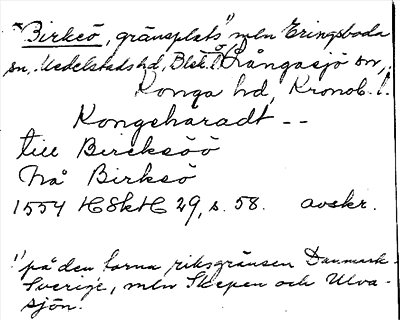 Birksö, gränsplats¹⁾ mln Eringsboda
sn, Medelstads hd, Blek. l. o. Långasjö sn,
Konga hd, Kronob. l.
Kongeharadt --
till Bircksöö
frå Birksö
1554 HSkH 29, s. 58. avskr.
¹⁾ på den forna riksgränsen Danmark-
Sverige, mln Skepen och Ulva-
sjön.